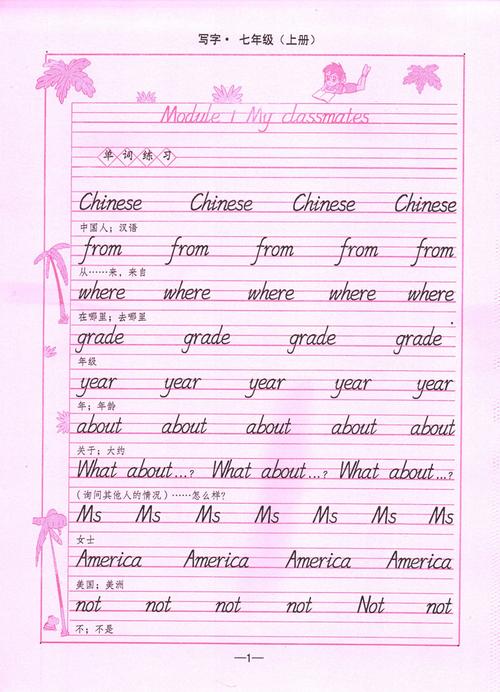 写字·七年级（上册）
Module 1 My classmates
单词练习
Chinese Chinese Chinese Chinese
中国人；汉语
from from from from from
从……来，来自
where where where where where
在哪里；去哪里
grade grade grade grade
年级
year year year year year
年；年龄
about about about about about
关于；大约
What about...? What about...? What about...?
（询问其他人的情况）……怎么样？
Ms Ms Ms Ms Ms Ms Ms
女士
America America America America
美国；美洲
not not not not Not not
不；不是
—1—